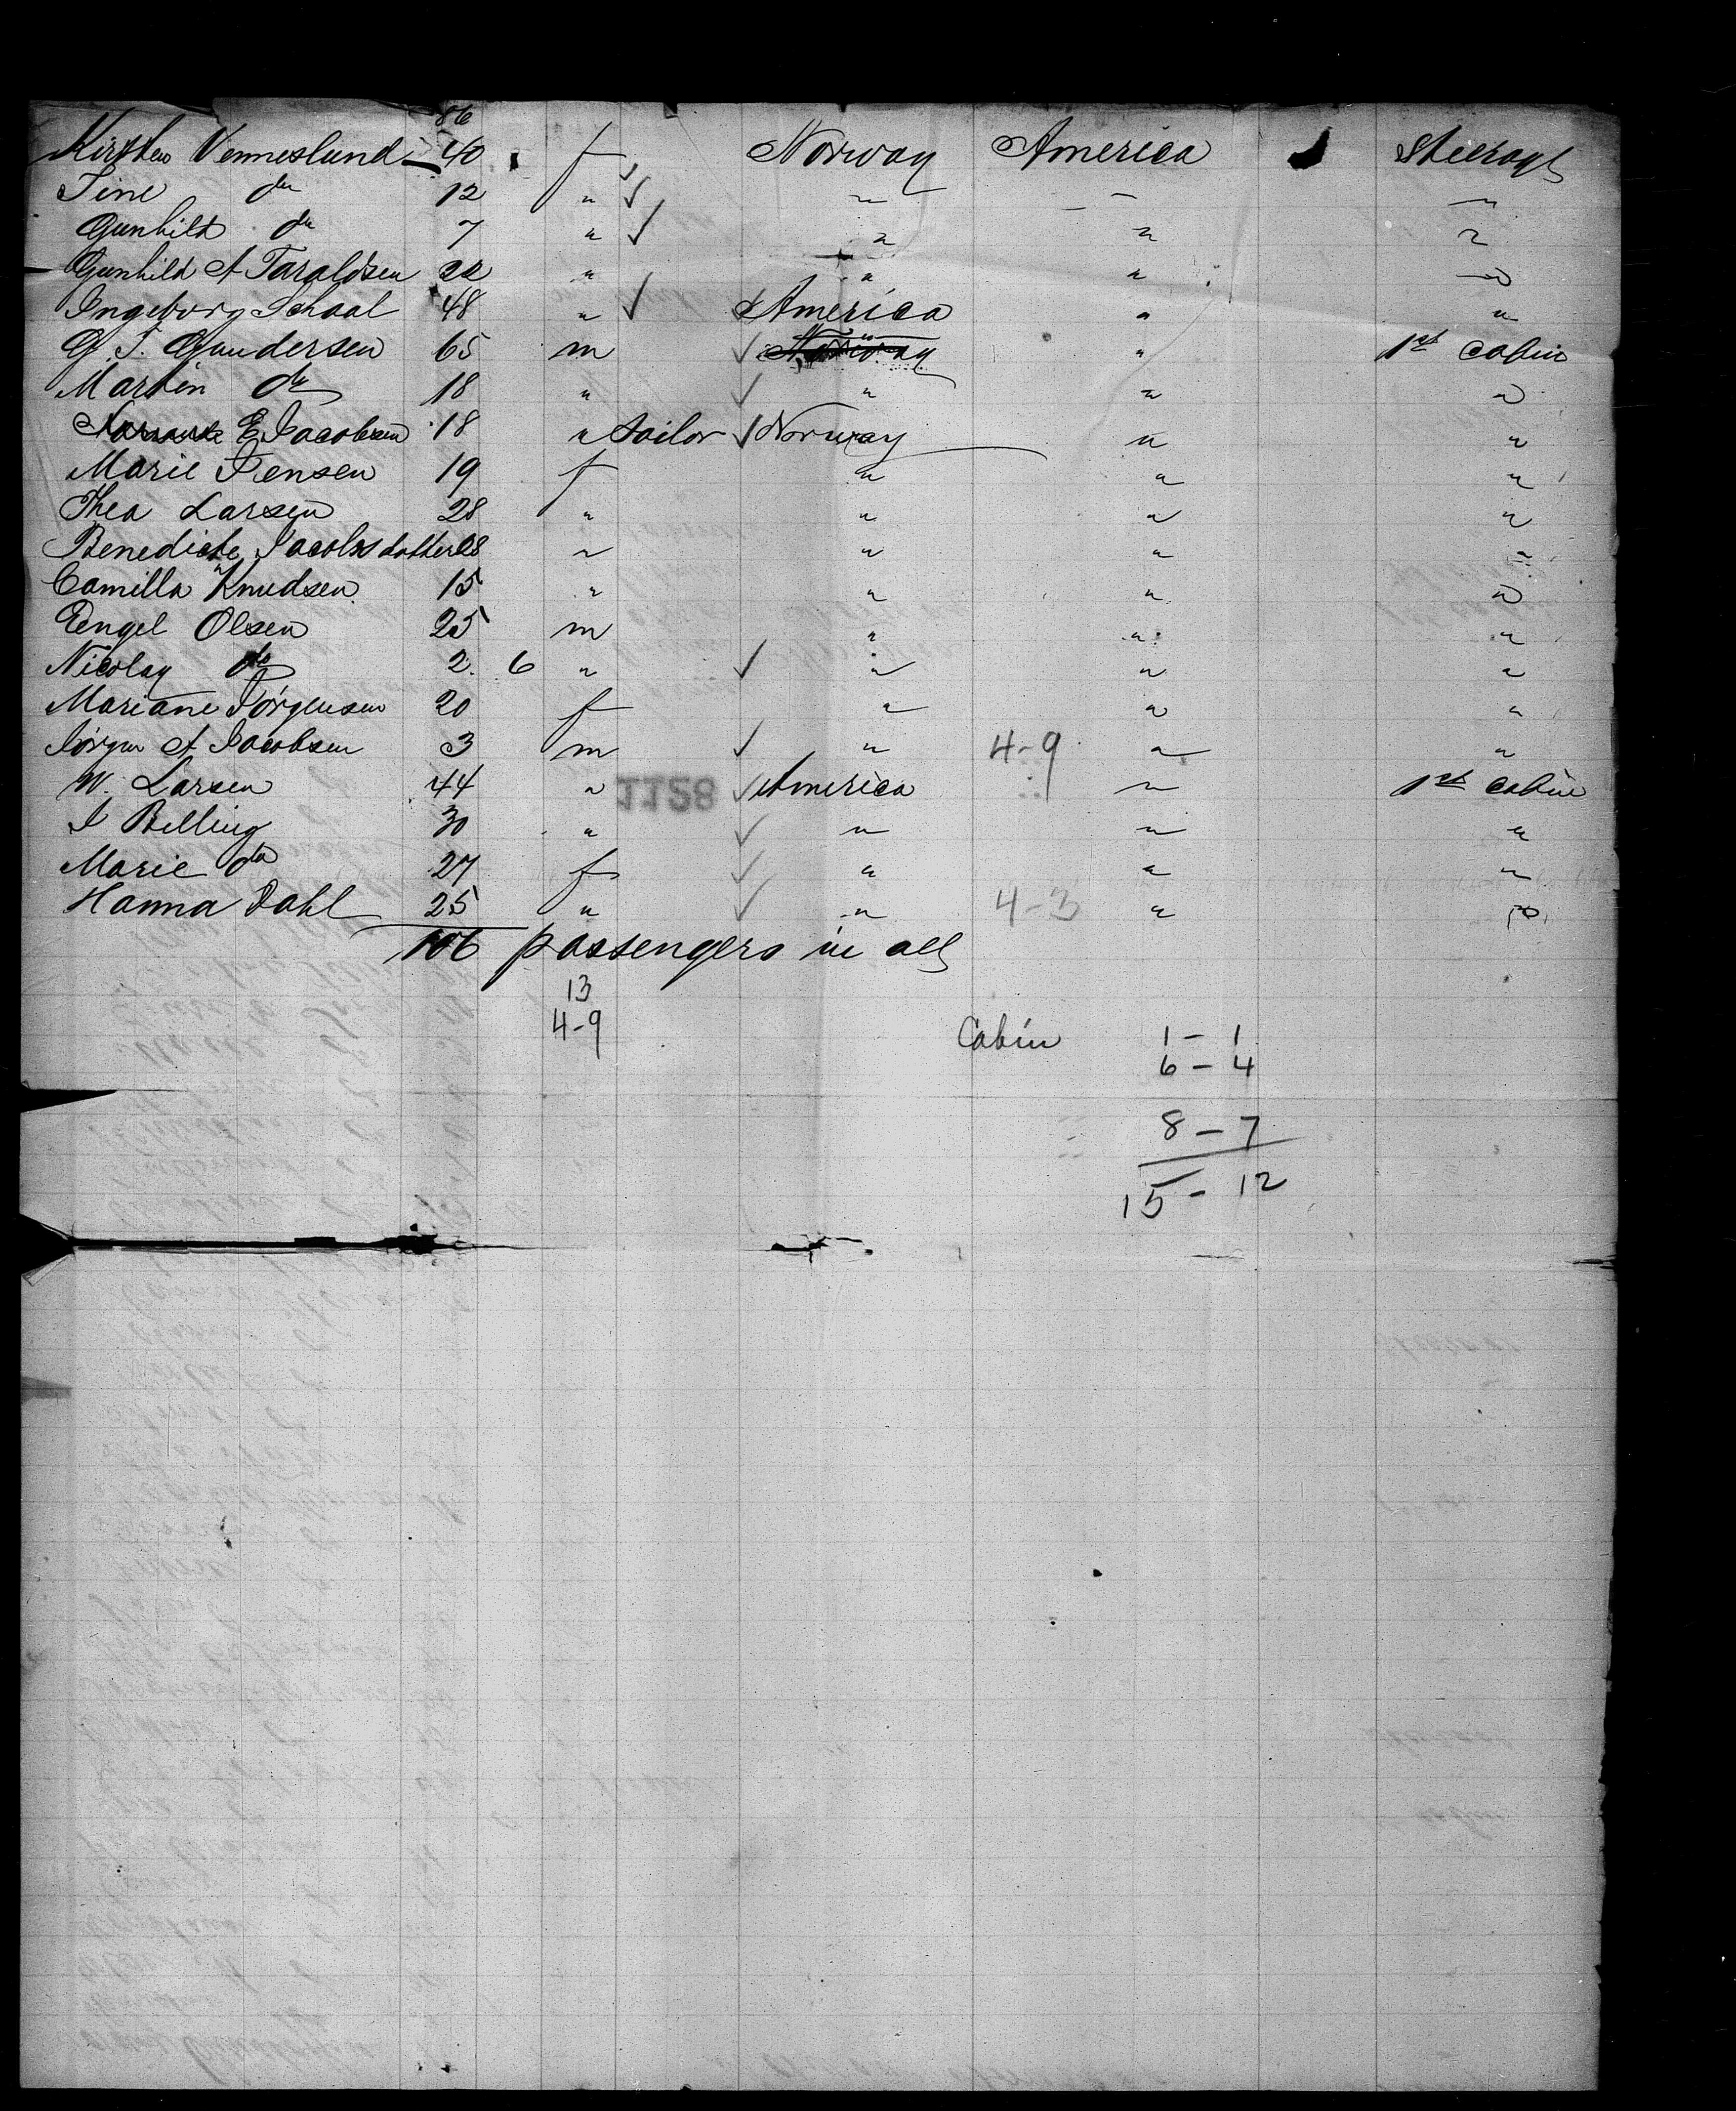 86
Kirsten Venneslund 40 f Norway America Steerage
Tine do 12 " " " "
Gunhild do 7 " " " "
Gunhild A Taraldsen 22 " " " "
Ingeborg Schaal 48 " America " "
G. T. Gundersen 65 m Norway " 1st Cabin
Martin do 18 " " " "
E Jacobsen 18 " sailor Norway " "
Marie Jensen 19 f " " "
Thea Larsen 28 " " " "
Benedicte Jacobsdatter 28 " " " "
Camilla Knudsen 15 " " " "
Engel Olsen 25 m " " "
Nicolay do 2. 6 " " " "
Mariane Jörgensen 20 f " " "
Jörgen A Jacobsen 3 m " 4-9 " "
W. Larsen 44 " 1128 America " 1st Cabin
J Belling 30 " " " "
Marie do 27 f " " "
Hanna Dahl 25 " " 4-3 " "
106 passengers in all
13
4-9
Cabin 1 - 1
6 - 4
8 - 7
15 - 12